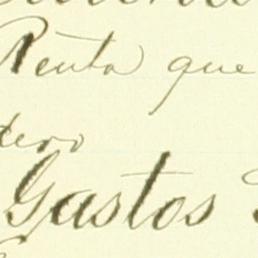 Renta que
tero
Gastos